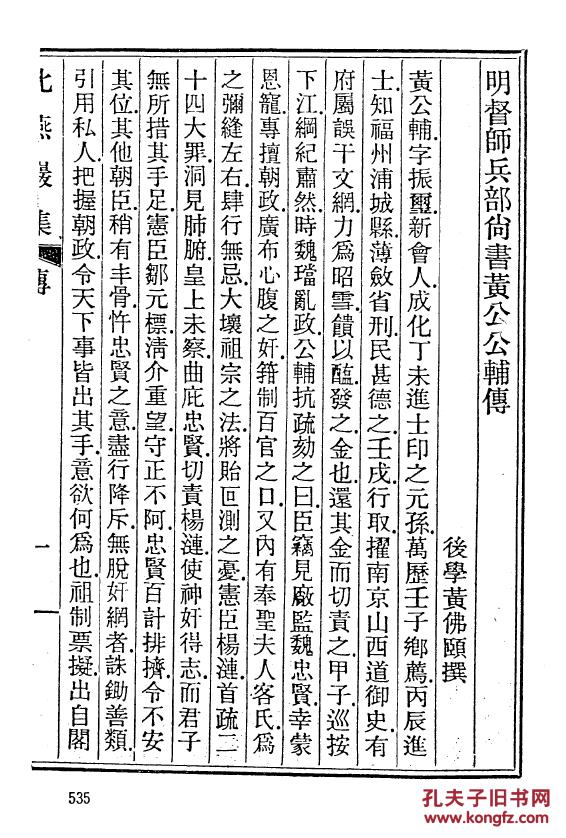 明督師兵部尙書黃公公輔傳
後學黃佛頤撰
黃公輔字振璽新會人成化丁未進士印之元孫萬歷壬子鄉薦丙辰進
士知福州浦城縣薄斂省刑民甚德之壬戌行取擢南京山西道御史有
府屬誤干文網力爲昭雪饋以醢發之金也還其金而切責之甲子巡按
下江綱紀肅然時魏璫亂政公輔抗疏劾之曰臣竊見廠監魏忠賢幸蒙
恩寵專擅朝政廣布心腹之奸箝制百官之口又內有奉聖夫人客氏爲
之彌縫左右肆行無忌大壞祖宗之法將貽叵測之憂憲臣楊漣首疏二
十四大罪洞見肺腑皇上未察曲庇忠賢切責楊漣使神奸得志而君子
無所措其手足憲臣鄒元標淸介重望守正不阿忠賢百計排擠令不安
其位其他朝臣稍有丰骨忤忠賢之意盡行降斥無脫奸網者誅鋤善類
引用私人把握朝政令天下事皆出其手意欲何爲也祖制票擬出自閣
北燕巖集 傳 一
535
孔夫子旧书网
www.kongfz.com